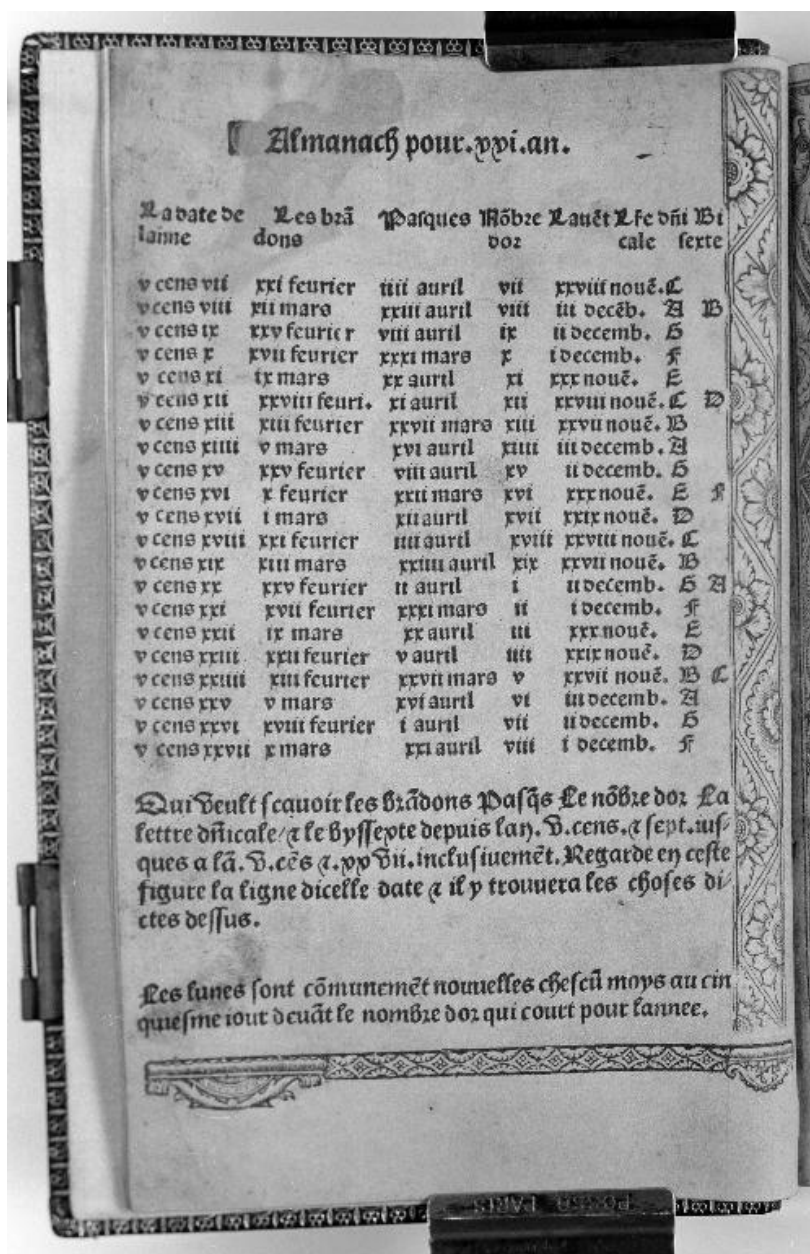 Almanach pour.xxi.an.
La date de Les brã Pasques Nõbre Lauẽt Lr̃e dñi Bi
lanne dons dor cale sexte
v cens vii xxi feurier iiii auril vii xxviii nouẽ. C
v cens viii xii mars xxiii auril viii iii decẽb. A B
v cens ix xxv feurier viii auril ix ii decemb. G
v cens x xvii feurier xxxi mars x i decemb. F
v cens xi ix mars xx auril xi xxx nouẽ. E
v cens xii xxviii feuri. xi auril xii xxviii nouẽ. C D
v cens xiii xiii feurier xxvii mars xiii xxvii nouẽ. B
v cens xiiii v mars xvi auril xiiii iii decemb. A
v cens xv xxv feurier viii auril xv ii decemb. G
v cens xvi x feurier xxii mars xvi xxx nouẽ. E F
v cens xvii i mars xii auril xvii xxix nouẽ. D
v cens xviii xxi feurier iiii auril xviii xxviii nouẽ. C
v cens xix xiii mars xxiiii auril xix xxvii nouẽ. B
v cens xx xxv feurier ii auril i ii decemb. G A
v cens xxi xvii feurier xxxi mars ii i decemb. F
v cens xxii ix mars xx auril iii xxx nouẽ. E
v cens xxiii xxii feurier v auril iiii xxix nouẽ. D
v cens xxiiii xiii feurier xxvii mars v xxvii nouẽ. B C
v cens xxv v mars xvi auril vi iii decemb. A
v cens xxvi xviii feurier i auril vii ii decemb. G
v cens xxvii x mars xxi auril viii i decemb. F
Qui veult scauoir les brãdons Pasq̃s Le nõbre dor La
lettre dñicale/ ⁊ le byssexte depuis lan. V. cens. ⁊ sept. ius-
ques a lã. V. cẽs ⁊. xx Vii. inclusiuemẽt. Regarde en ceste
figure la ligne dicelle date ⁊ il y trouuera les choses di-
ctes dessus.
Les lunes sont cõmunemẽt nouuelles chescũ moys au cin
quiesme iour deuãt le nombre dor qui court pour lannee.